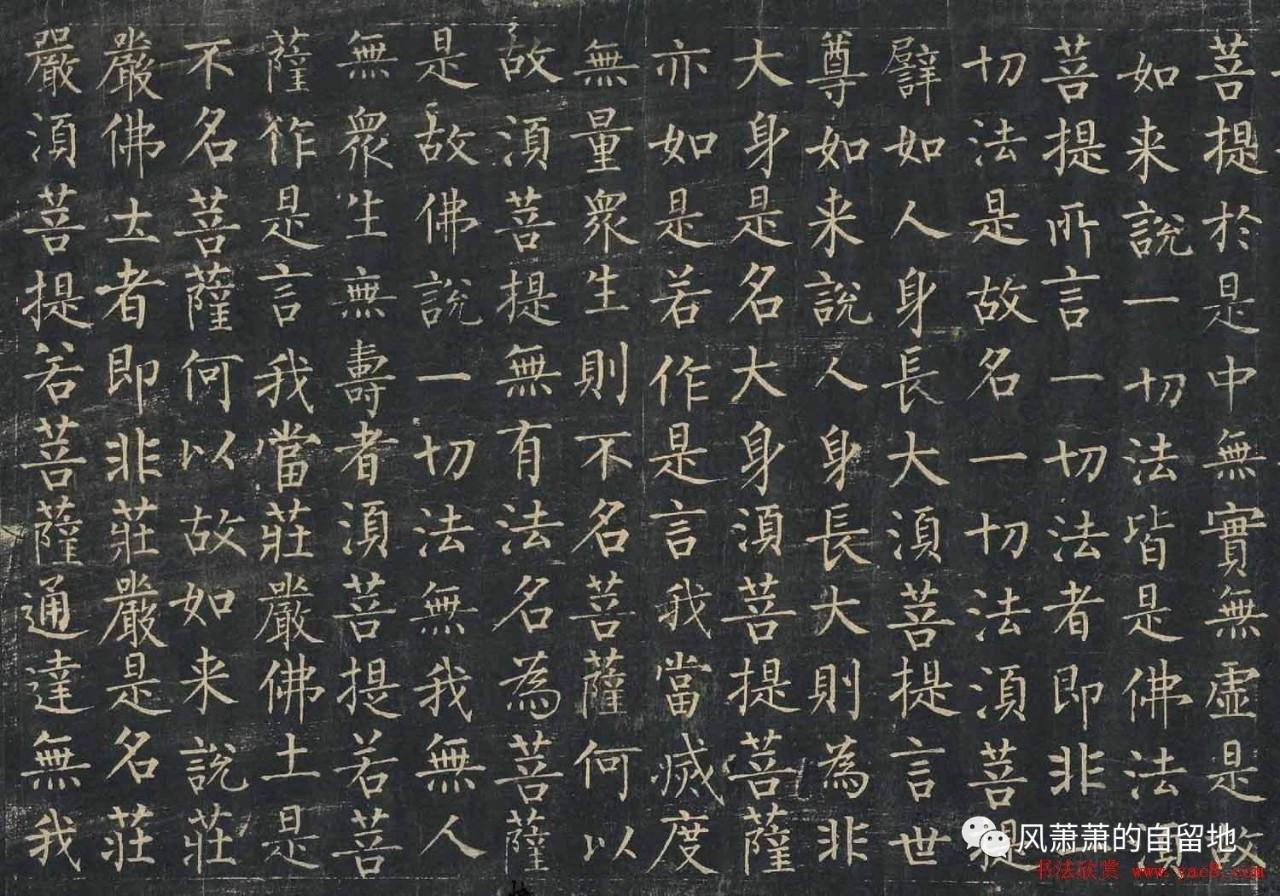 菩提於是中無實無虛是故
如来說一切法皆是佛法須
菩提所言一切法者即非
切法是故名一切法須菩提
譬如人身長大須菩提言世
尊如来說人身長大則為非
大身是名大身須菩提菩薩
亦如是若作是言我當滅度
無量衆生則不名菩薩何以
故須菩提無有法名為菩薩
是故佛說一切法無我無人
無衆生無壽者須菩提若菩
薩作是言我當莊嚴佛土是
不名菩薩何以故如来說莊
嚴佛土者即非莊嚴是名莊
嚴須菩提若菩薩通達無我
风萧萧的自留地
书法欣赏 www.yac8.com